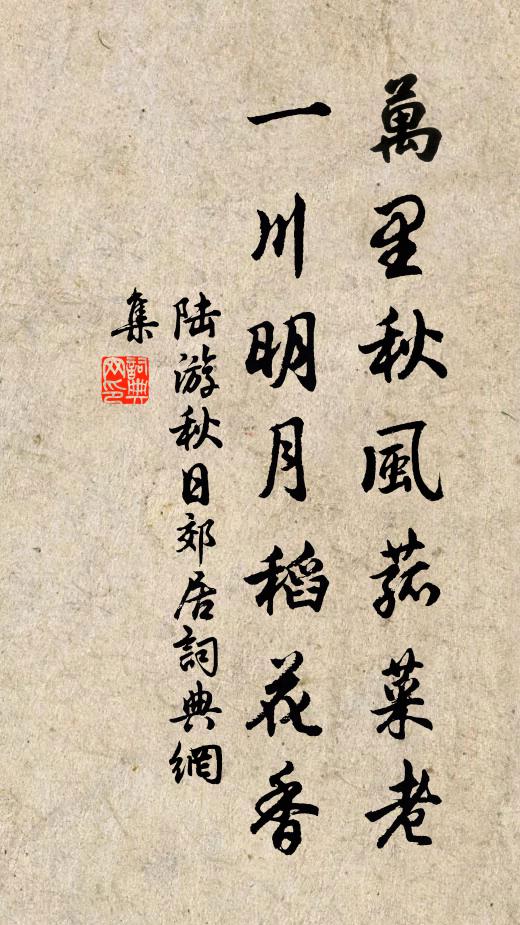 萬里秋風菰菜老
一川明月稻花香
陸游秋日郊居詞典網
集
詞典網印